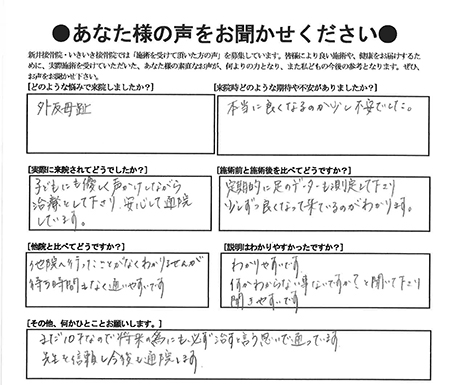 ●あなた様の声をお聞かせください●
新井接骨院・いきいき接骨院では「施術を受けて頂いた方の声」を募集しています。皆様により良い施術や、健康をお届けするた
めに、実際施術を受けていただいた、あなた様の素直なお声が、何よりの力となり、また私どもの今後の参考となります。ぜひ、
お声をお聞かせ下さい。
[どのような悩みで来院しましたか？]
外反母趾
[来院時どのような期待や不安がありましたか？]
本当に良くなるのか少し不安でした。
[実際に来院されてどうでしたか？]
子どもにも優しく声かけしながら
治療として下さり、安心して通院
しています。
[施術前と施術後を比べてどうですか？]
定期的に足のデーターも測定して下さり
少しずつ良くなって来ているのがわかります。
[他院と比べてどうですか？]
他院へ行ったことがなくわかりませんが
待ち時間もなく通いやすいです
[説明はわかりやすかったですか？]
わかりやすいです
何かわからない事ないですか？と聞いて下さり
聞きやすいです
[その他、何かひとことお願いします。]
まだ10才なので将来の為にも必ず治すと言う思いで通っています
先生を信頼し今後も通院します